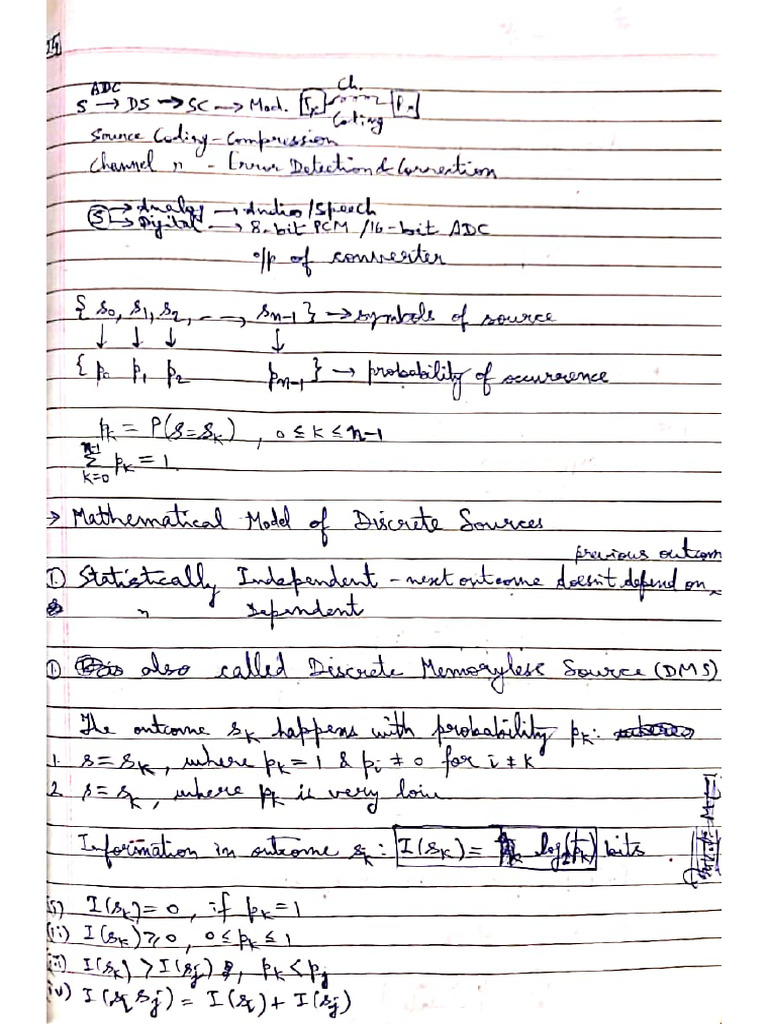 14
ADC
S → DS → SC → Mod. [Tx] Ch. [Rx]
Coding
Source Coding - Compression
Channel " - Error Detection & Correction
(S) → Analog → Audio/Speech
→ Digital → 8-bit PCM /16-bit ADC
o/p of converter
{ s0, s1, s2, - - →, sn-1 } → symbols of source
↓ ↓ ↓ ↓
{ p0 p1 p2 pn-1 } → probability of occurrence
pk = P(s=sk) , 0 ≤ k ≤ n-1
n-1
Σ pk = 1
k=0
→ Mathematical Model of Discrete Sources
previous outcom
① Statistically Independent - next outcome doesn't depend on ^
" Dependent
① also called Discrete Memoryless Source (DMS)
The outcome sk happens with probability pk:
1. s = sk , where pk = 1 & pi ≠ 0 for i ≠ k
2. s = sk , where pk is very low
Information in outcome sk : I(sk) = log2(1/pk) bits
(i) I(sk) = 0 , if pk = 1
(ii) I(sk) ≥ 0 , 0 ≤ pk ≤ 1
(iii) I(sk) > I(sj) , pk < pj
(iv) I(sk sj) = I(sk) + I(sj)